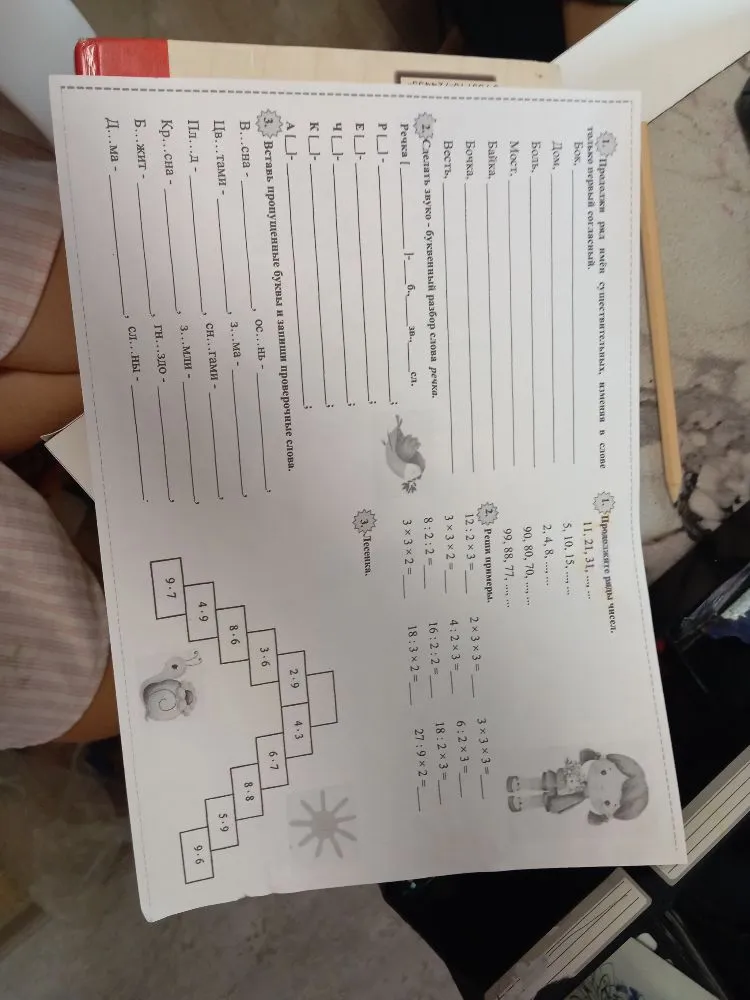 1. Продолжи ряд имён существительных, изменяя в слове
только первый согласный.
Бок, ____
Дом, ____
Боль, ____
Мост, ____
Байка, ____
Бочка, ____
Весть, ____
2. Сделать звуко - буквенный разбор слова речка.
Речка [ ____ ]-____ б.,____ зв.,____ сл.
Р [__]- ____;
Е [__]- ____;
Ч [__]- ____;
К [__]- ____;
А [__]- ____;
3. Вставь пропущенные буквы и запиши проверочные слова.
В…сна - ____, ос…нь - ____,
Цв…тами - ____, з…ма - ____,
Пл…д - ____, сн…гами - ____,
Кр…сна - ____, з…мли - ____,
Б…жит ____, гн…здо - ____,
Д…ма - ____, сл…ны - ____.
1. Продолжите ряды чисел.
11, 21, 31, …, …
5, 10, 15, …, …
2, 4, 8, …, …
90, 80, 70, …, …
99, 88, 77, …, …
2. Реши примеры.
12 : 2 × 3 = ___ 2 × 3 × 3 = ___ 3 × 3 × 3 = ___
3 × 3 × 2 = ___ 4 : 2 × 3 = ___ 6 : 2 × 3 = ___
8 : 2 : 2 = ___ 16 : 2 : 2 = ___ 18 : 2 × 3 = ___
3 × 3 × 2 = ___ 18 : 3 × 2 = ___ 27 : 9 × 2 = ___
3. Лесенка.
2·9 4·3
3·6 6·7
8·6 8·8
4·9 5·9
9·7 9·6